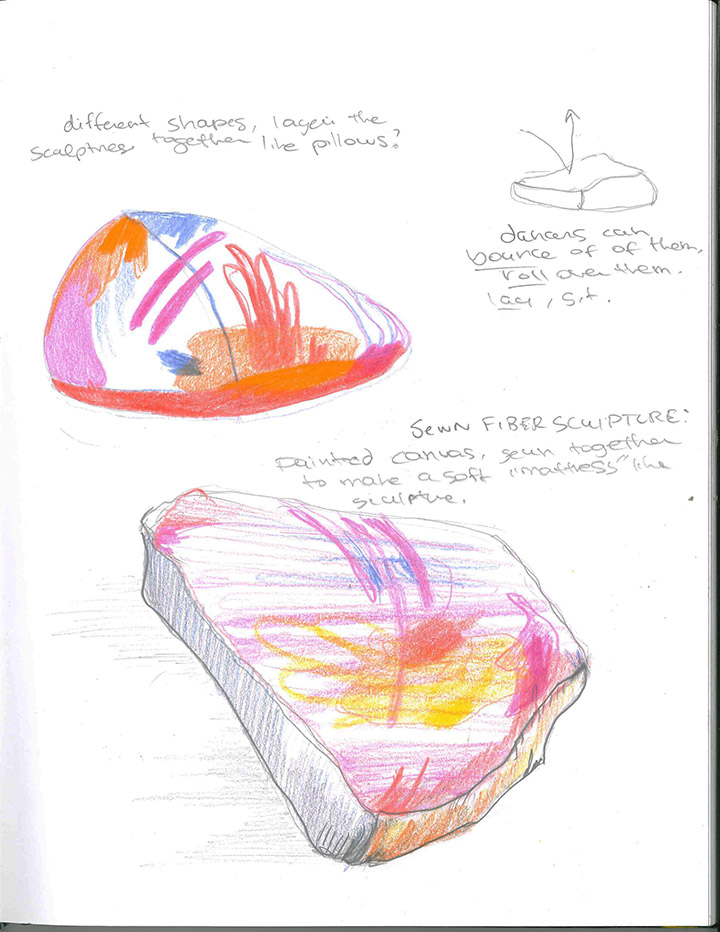 different shapes, layer the
sculptures together like pillows?
dancers can
bounce of of them,
roll over them.
lay, sit.
SEWN FIBER SCULPTURE:
painted canvas, sewn together
to make a soft "mattress" like
sculptue.